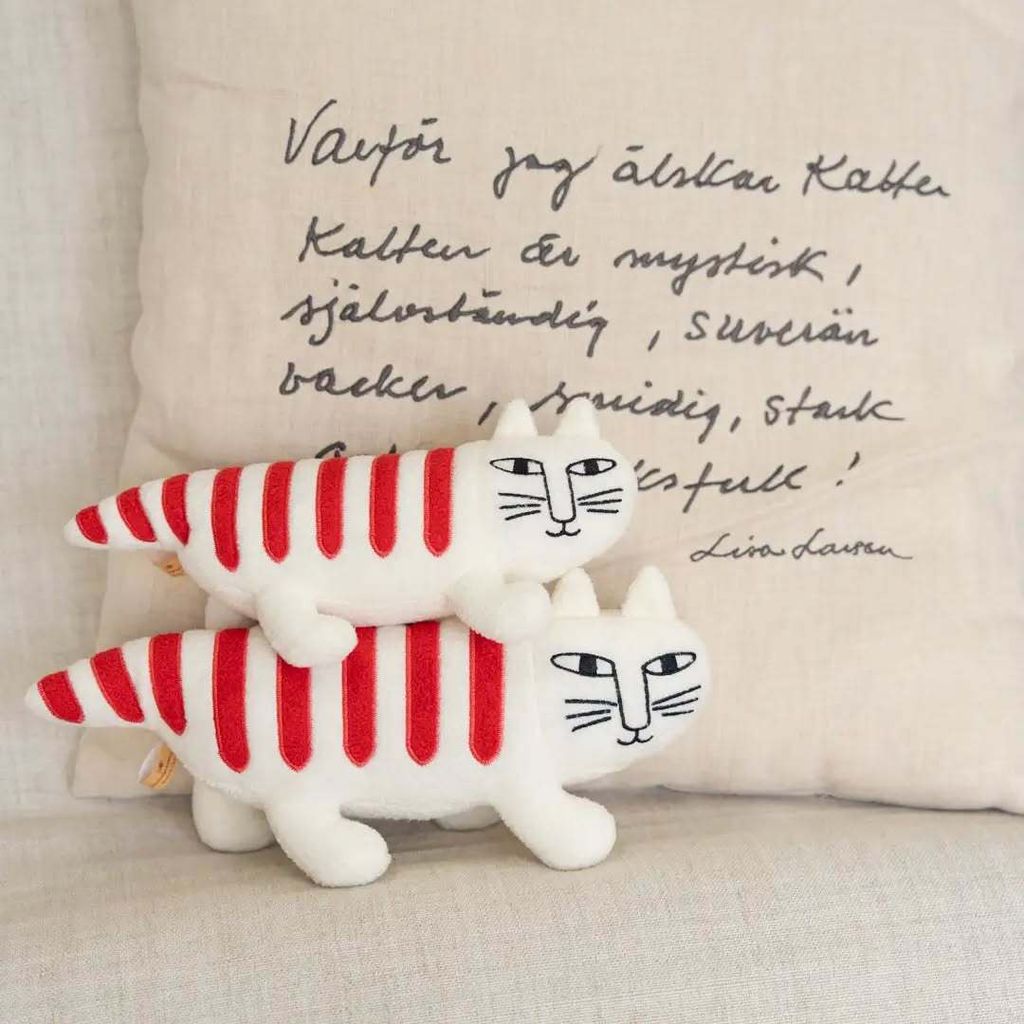 Varför jag älskar Katter
Katten är mystisk,
självständig, suverän
vacker, smidig, stark
!
Lisa Larson